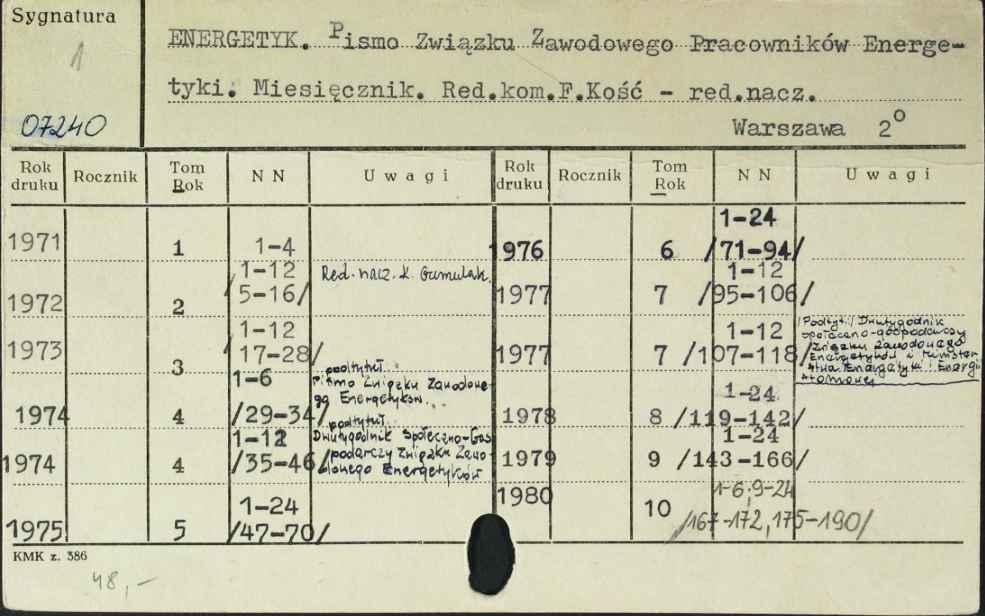 Sygnatura
1
07240
ENERGETYK. Pismo Związku Zawodowego Pracowników Energe-
tyki. Miesięcznik. Red.kom.F.Kość - red.nacz.
Warszawa 2º
Rok druku Rocznik Tom Rok NN Uwagi Rok druku Rocznik Tom Rok NN Uwagi
1971 1 1-4
1972 2 1-12 /5-16/ Red. nacz. K. Gumulak.
1973 3 1-12 /17-28/
1974 4 1-6 /29-34/ podtytuł
Pismo Związku Zawodowe-
go Energetyków.
1974 4 1-12 /35-46/ podtytuł
Dwutygodnik Społeczno-Gos
podarczy Związku Zawo-
dowego Energetyków
1975 5 1-24 /47-70/
1976 6 1-24 /71-94/
1977 7 1-12 /95-106/
1977 7 1-12 /107-118/ /Podtyt./ Dwutygodnik
społeczno-gospodarczy
Związku Zawodowego
Energetyków i Minister
stwa Energetyki i Energii
Atomowej
1978 8 1-24 /119-142/
1979 9 1-24 /143-166/
1980 10 1-6; 9-24 /167-172, 175-190/
KMK z. 386
48,-